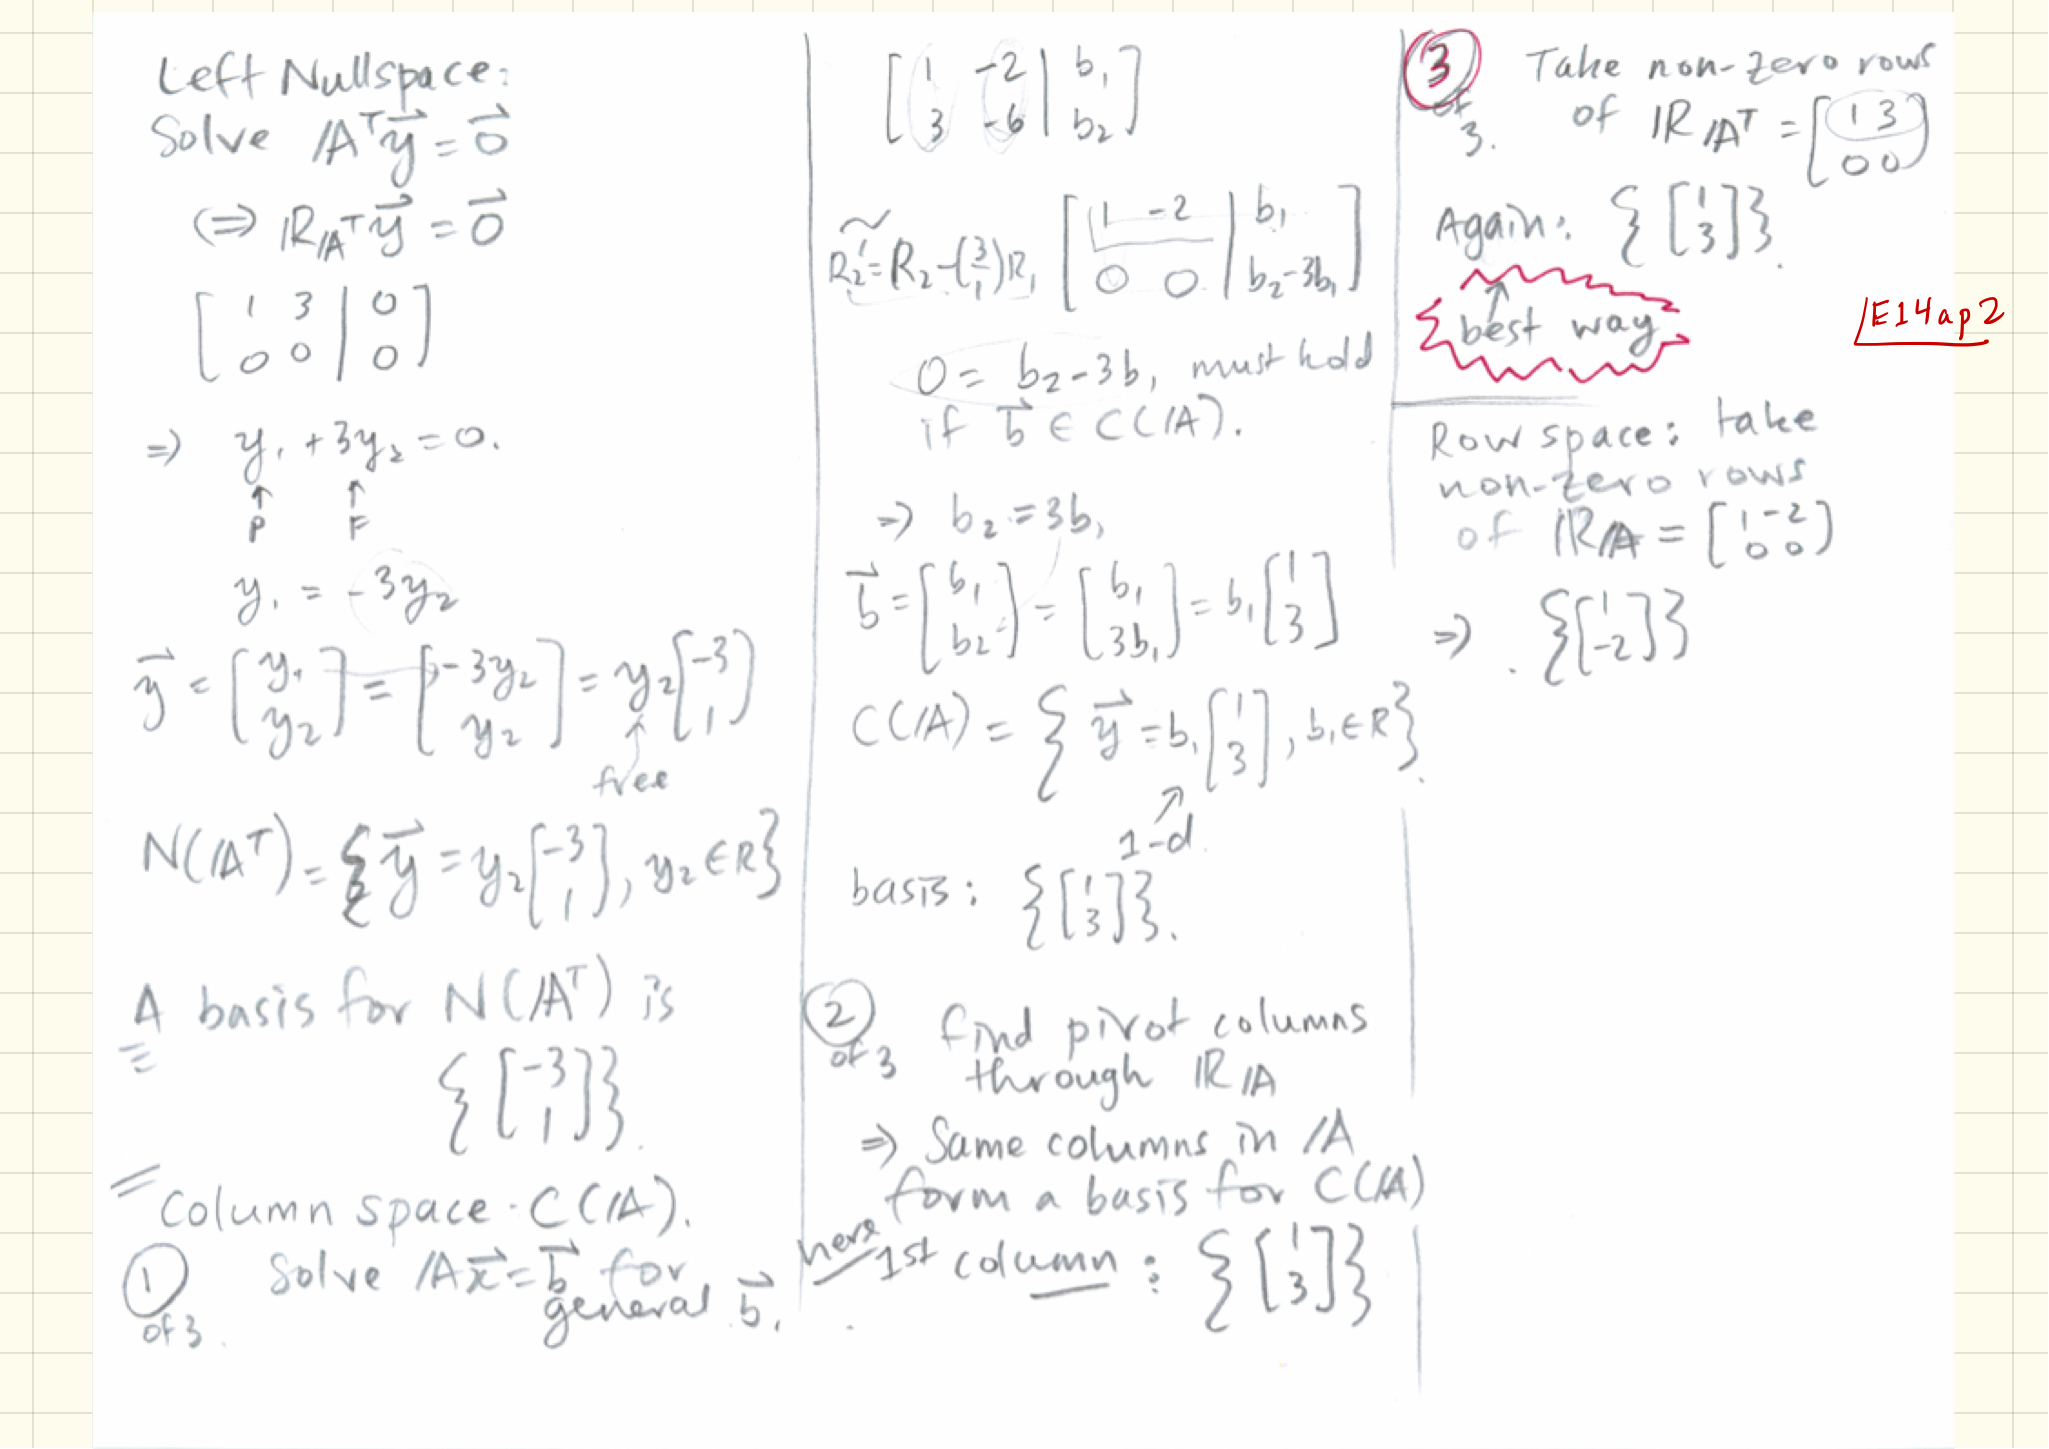 Left Nullspace:
Solve Aᵀy⃗ = 0⃗
⟺ R_Aᵀ y⃗ = 0⃗
[ 1 3 | 0
0 0 | 0 ]
⇒ y₁ + 3y₂ = 0.
↑ ↑
P F
y₁ = -3y₂
y⃗ = [y₁; y₂] = [-3y₂; y₂] = y₂ [-3; 1]
↑
free
N(Aᵀ) = { y⃗ = y₂ [-3; 1], y₂ ∈ R }
A basis for N(Aᵀ) is
{ [-3; 1] }.
Column space. C(A).
① of 3. Solve Ax⃗ = b⃗ for
general b⃗.
[ 1 -2 | b₁
3 -6 | b₂ ]
~
R₂' = R₂ - (3/1)R₁ [ 1 -2 | b₁
0 0 | b₂-3b₁ ]
0 = b₂ - 3b₁ must hold
if b⃗ ∈ C(A).
⇒ b₂ = 3b₁
b⃗ = [b₁; b₂] = [b₁; 3b₁] = b₁ [1; 3]
C(A) = { y⃗ = b₁ [1; 3], b₁ ∈ R }.
↗
1-d.
basis: { [1; 3] }.
② of 3 find pivot columns
through R_A
⇒ Same columns in A
form a basis for C(A)
here 1st column: { [1; 3] }
③ of 3. Take non-zero rows
of R_Aᵀ = [ 1 3
0 0 ]
Again: { [1; 3] }.
↑
best way
E14ap2
Row space: take
non-zero rows
of R_A = [ 1 -2
0 0 ]
⇒ . { [1; -2] }